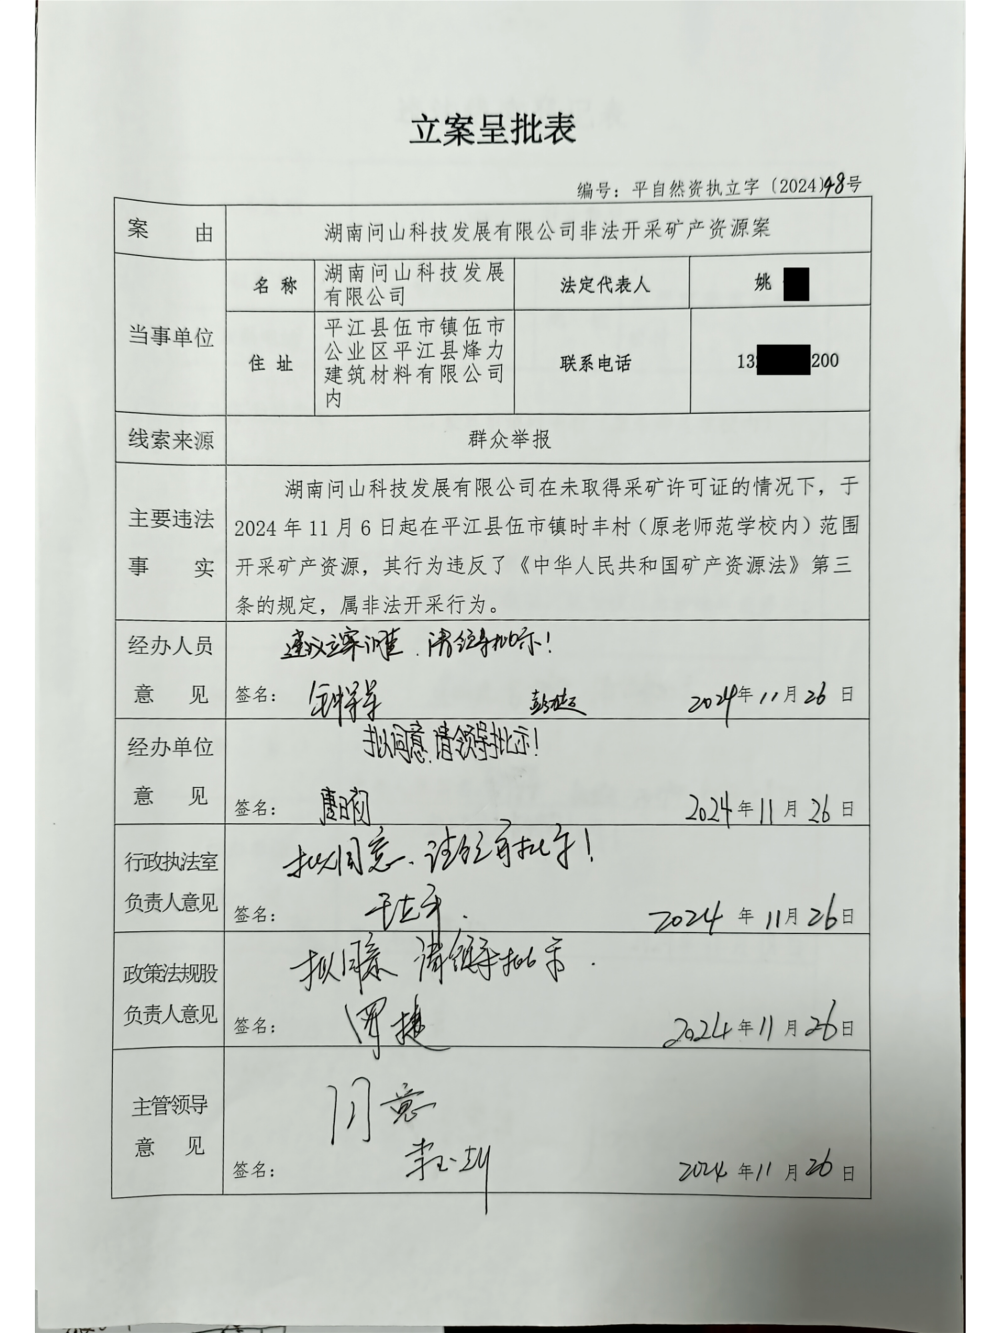 立案呈批表
编号：平自然资执立字〔2024〕48号
案 由
湖南问山科技发展有限公司非法开采矿产资源案
当事单位
名 称
湖南问山科技发展
有限公司
法定代表人
姚
住 址
平江县伍市镇伍市
公业区平江县烽力
建筑材料有限公司
内
联系电话
13
200
线索来源
群众举报
主要违法
事 实
湖南问山科技发展有限公司在未取得采矿许可证的情况下，于
2024 年 11 月 6 日起在平江县伍市镇时丰村（原老师范学校内）范围
开采矿产资源，其行为违反了《中华人民共和国矿产资源法》第三
条的规定，属非法开采行为。
经办人员
意 见
建议立案调查，请领导批示！
签名：
2024年11月26日
经办单位
意 见
拟同意，请领导批示！
签名：
2024年11月26日
行政执法室
负责人意见
拟同意、请领导批示！
签名：
2024年11月26日
政策法规股
负责人意见
拟同意 请领导批示.
签名：
罗捷
2024年11月26日
主管领导
意 见
同意
签名：
2024年11月26日